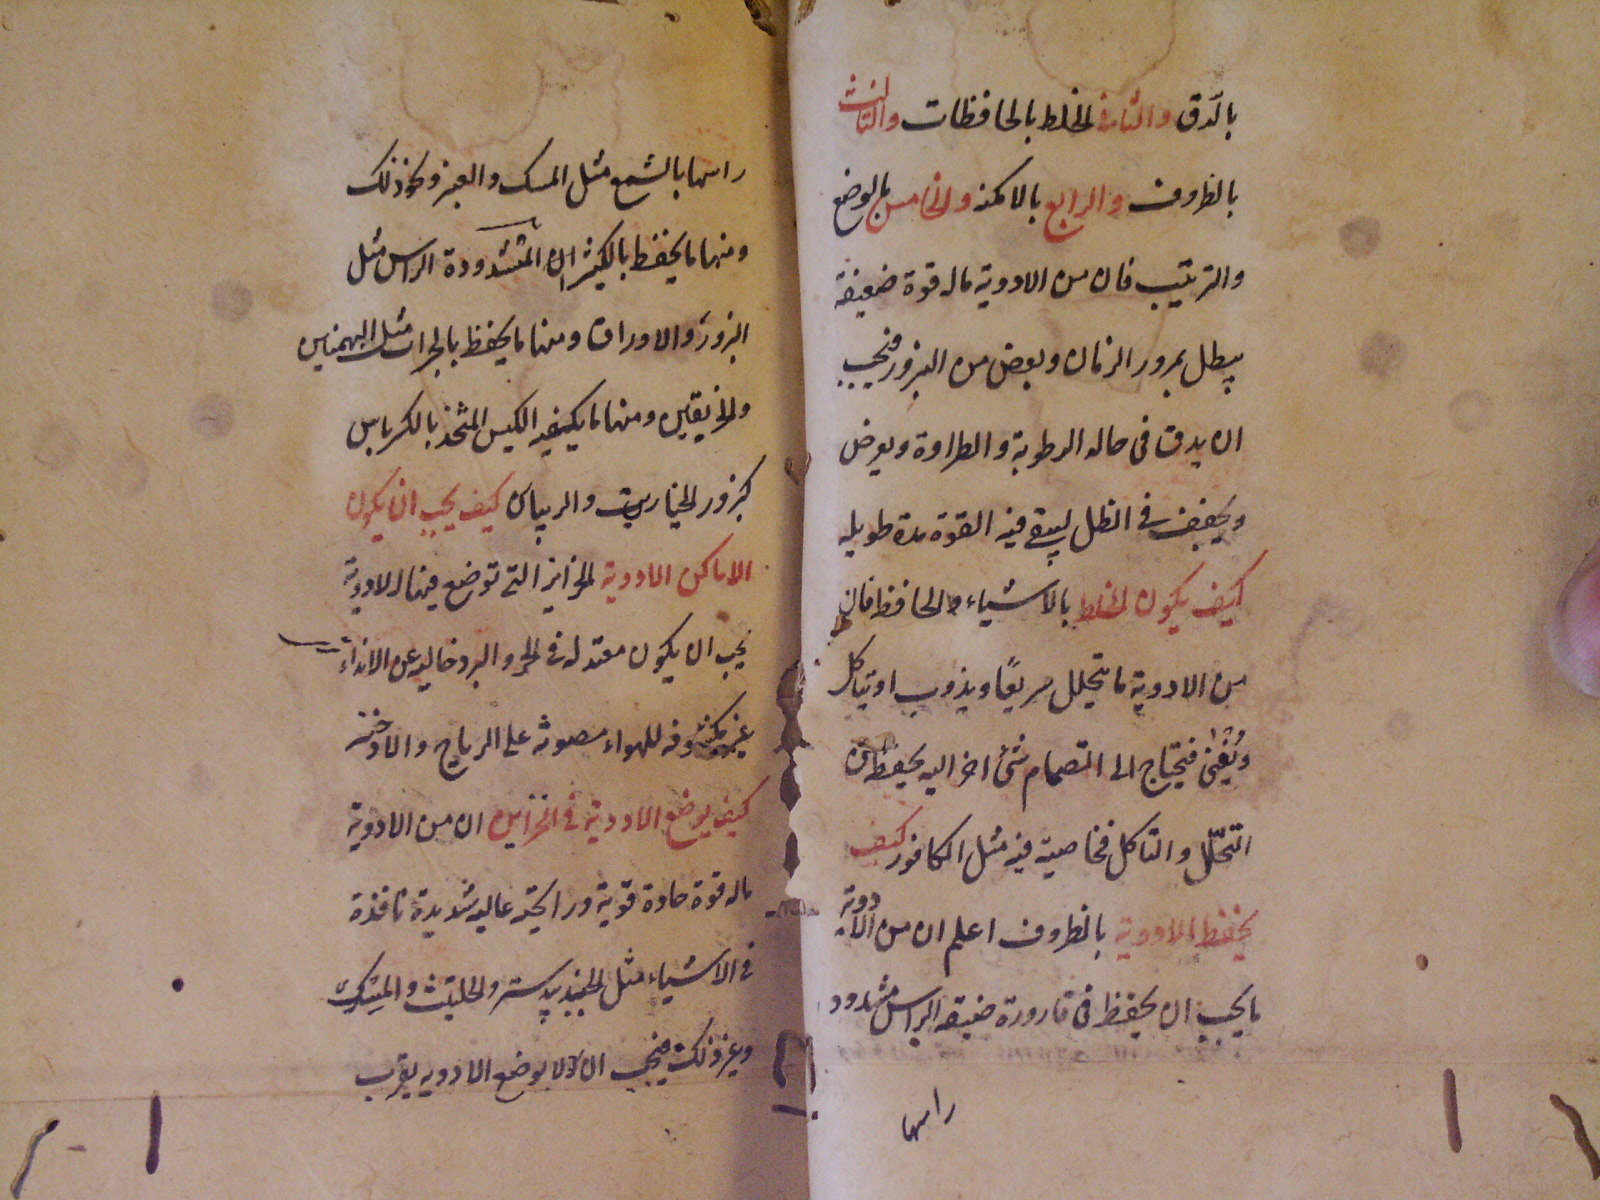 بالدق والثانی الخلط بالحافظات والثالث
بالظروف والرابع بالامکنه والخامس بالوضع
والترتیب فان من الادویة ماله قوة ضعیفة
یبطل بمرور الزمان وبعض من البزور فیجب
ان یدق فی حاله الرطوبة والطراوة ویعرض
ویجفف فی الظل لیبقی فیه القوة مدة طویله
کیف یکون الخلط بالاشیاء الحافظ فان
من الادویة ما یتحلل سریعًا ویذوب او یتاکل
ویُفنی فیحتاج الی انضمام شیٔ اخر الیه یحفظ عن
التحلّل والتاکل فخاصیة فیه مثل الکافور کیف
یحفظ الادویة بالظروف اعلم ان من الادویة
ما یجب ان یحفظ فی قارورة ضیقه الراس مشدود
راسها
راسها بالشمع مثل المسک والعنبر وکذلک
ومنها ما یحفظ بالکیزان المشدودة الراس مثل
البزور والاوراق ومنها ما یحفظ بالجرات مثل البهمنین
والخریقین ومنها ما یکیفیه الکیس المتخذ بالکرباس
کبزور الخیارین والریباس کیف یجب ان یکون
الاماکن الادویة الخزاین التی توضع فیها الادویة
یجب ان یکون معتدله فی الحر والبرد خالیه عن الانداء
غیر مکشوفه للهواء مصونه علی الریاح والادخنه
کیف یوضع الادویة فی الخزاین ان من الادویة
ماله قوة حادة قویة ورایحته عالیه شدیدة نافذة
فی الاشیاء مثل الجندبیدستر والحلتیث والمسک
وغیر ذلک فیجب ان لا یوضع الادویه بقرب